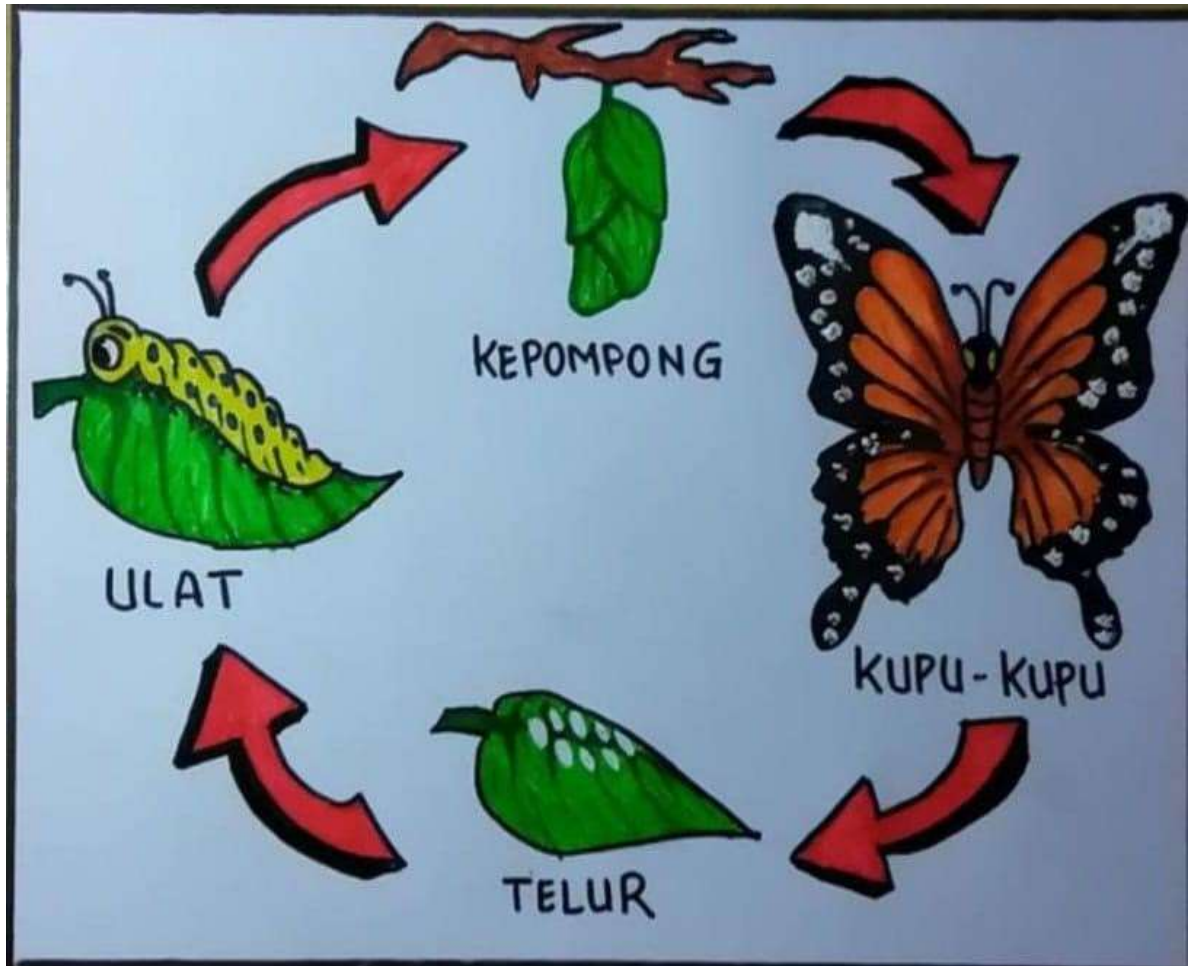 KEPOMPONG
ULAT
KUPU-KUPU
TELUR